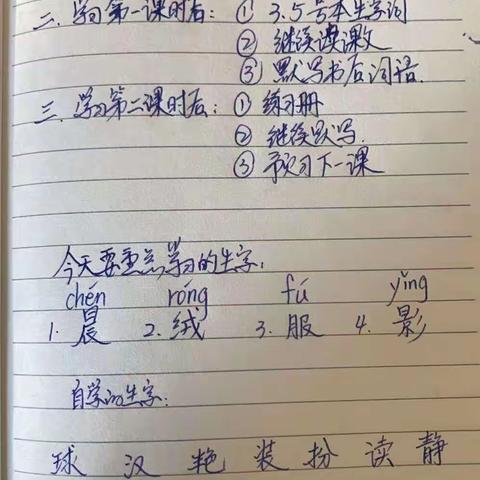 二、学习第一课时后：① 3.5号本生字词
② 继续读课文
③ 默写书后词语.
三、学习第二课时后：① 练习册
② 继续默写.
③ 预习下一课
今天要重点学习的生字：
chén róng fú yǐng
1. 晨 2. 绒 3. 服 4. 影
自学的生字：
球 汉 艳 装 扮 读 静